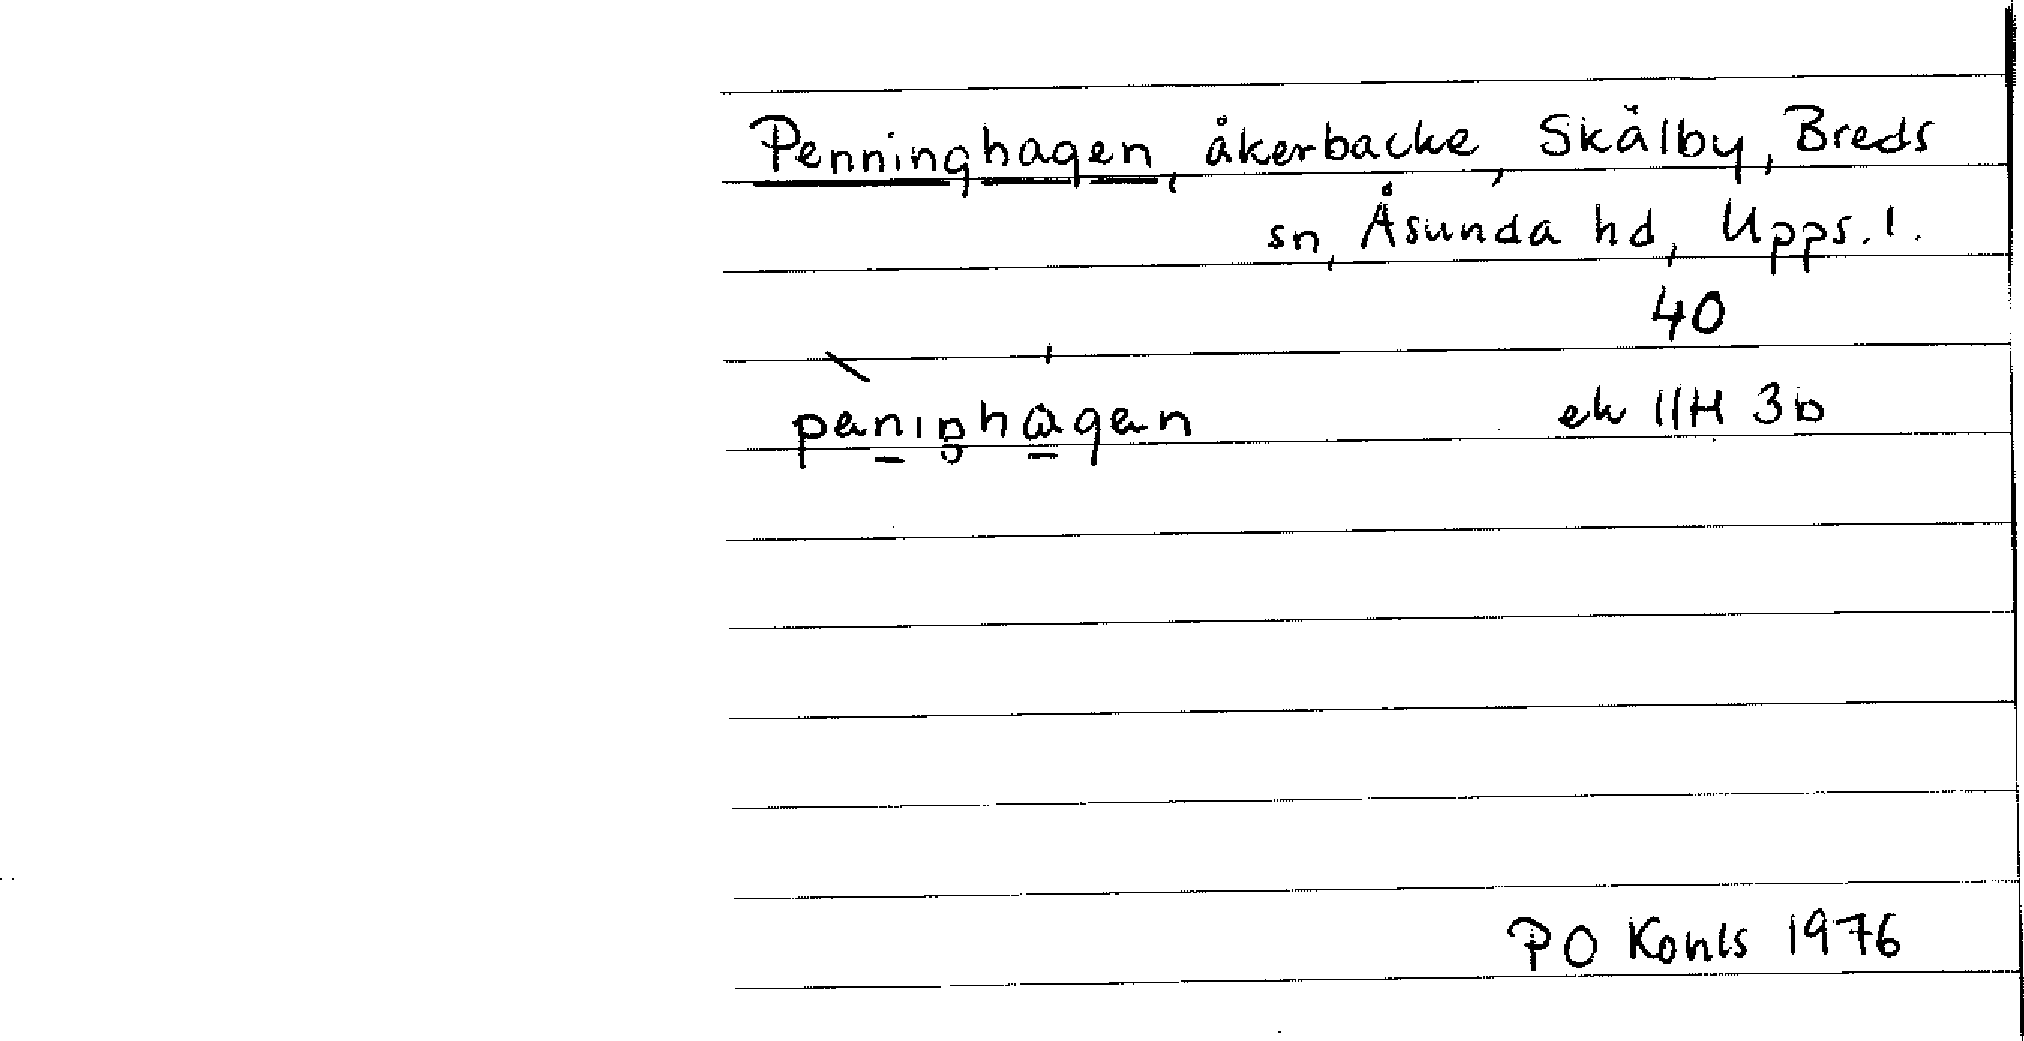 Penninghagen, åkerbacke, Skälby, Breds
sn, Åsunda hd, Upps. l.
40
ek 11H 3b
PO Konls 1976